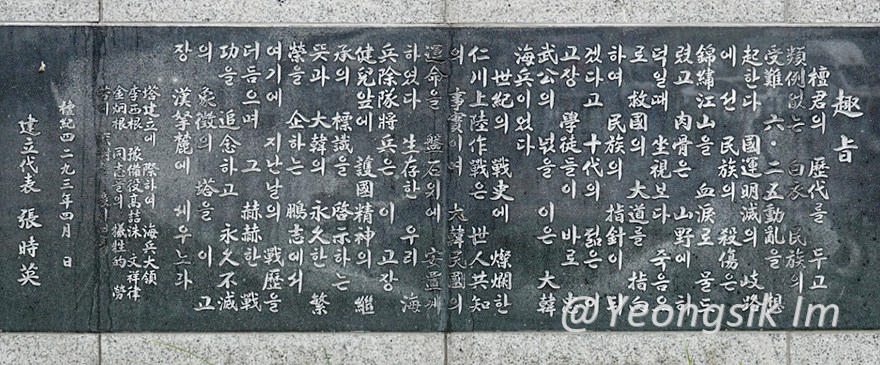 趣旨
檀君의 歷代를 두고
類例없는 白衣民族의
受難 六·二五動亂을 想
起한다 國運明滅의 岐路
에 선 民族의 殺傷은
錦繡江山을 血淚로 물드
렸고 肉骨은 山野에 허
덕일때 坐視보다 죽음으
로 救國의 大道를 指向
하여 民族의 指針이 되
겠다고 十代의 젊은 이
고장 學徒들이 바로 忠
武公의 넋을 이은 大韓
海兵이었다
世紀의 戰史에 燦爛한
仁川上陸作戰은 世人共知
의 事實이여 大韓民國의
運命을 盤石위에 安置케
하였다 生存한 우리 海
兵除隊將兵은 이 고장
健兒앞에 護國精神의 繼
承의 標識을 啓示하는
뜻과 大韓의 永久한 繁
榮을 企하는 鵬志에서
여기에 지난날의 戰歷을
더듬으며 그 赫赫한 戰
功을 追念하고 永久不滅
의 象徵의 塔을 이 고
장 漢拏麓에 세우노라
塔建立에 際하여 海兵大領
李西根 豫備役高喆洙 文祥律
金炯根 同志들의 犧牲的 勞
檀紀四二九三年四月 日
建立代表 張時英
@Yeongsik Im